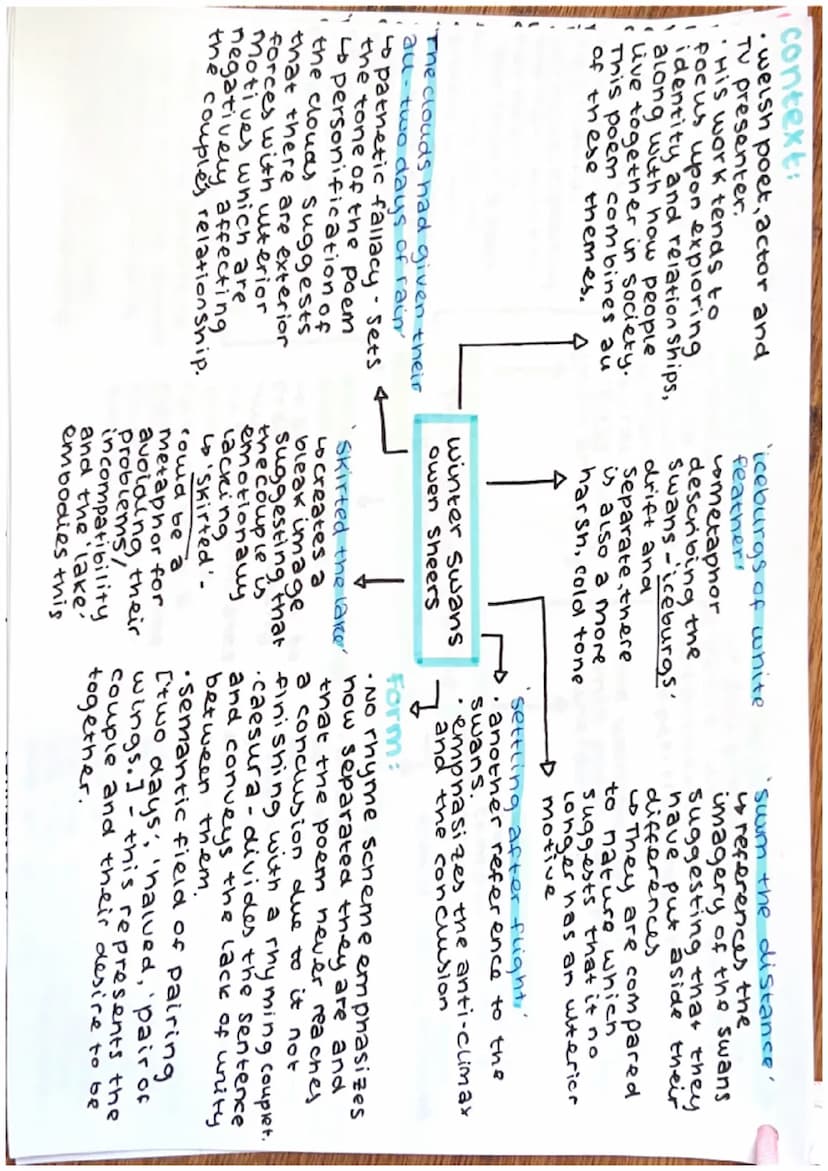 context:
• Welsh poet, actor and
TV presenter.
• His work tends to
focus upon exploring
identity and relationships,
along with how people
live together in society.
This poem combines all
of these themes.
'iceburgs of white
feather'
↳ metaphor
describing the
swans - 'iceburgs'
drift and
separate, there
is also a more
harsh, cold tone
'swum the distance'
↳ references the
imagery of the swans
suggesting that they
have put aside their
differences
↳ They are compared
to nature which
suggests that it no
longer has an ulterior
motive
'settling after flight'
• another reference to the
swans.
• emphasizes the anti-climax
and the conclusion
winter swans
owen sheers
The clouds had given their
all - two days of rain
↳ pathetic fallacy - sets
the tone of the poem
↳ personification of
the clouds suggests
that there are exterior
forces with ulterior
motives which are
negatively affecting
the couple's relationship.
'skirted the lake'
↳ creates a
bleak image
suggesting that
the couple is
emotionally
lacking
↳ 'skirted' -
could be a
metaphor for
avoiding their
problems/
incompatibility
and the 'lake'
embodies this
Form:
• No rhyme scheme emphasizes
how separated they are and
that the poem never reaches
a conclusion due to it not
finishing with a rhyming couplet.
• caesura - divides the sentence
and conveys the lack of unity
between them.
• semantic field of pairing
['two days', 'halved', 'pair of
wings.'] - this represents the
couple and their desire to be
together.